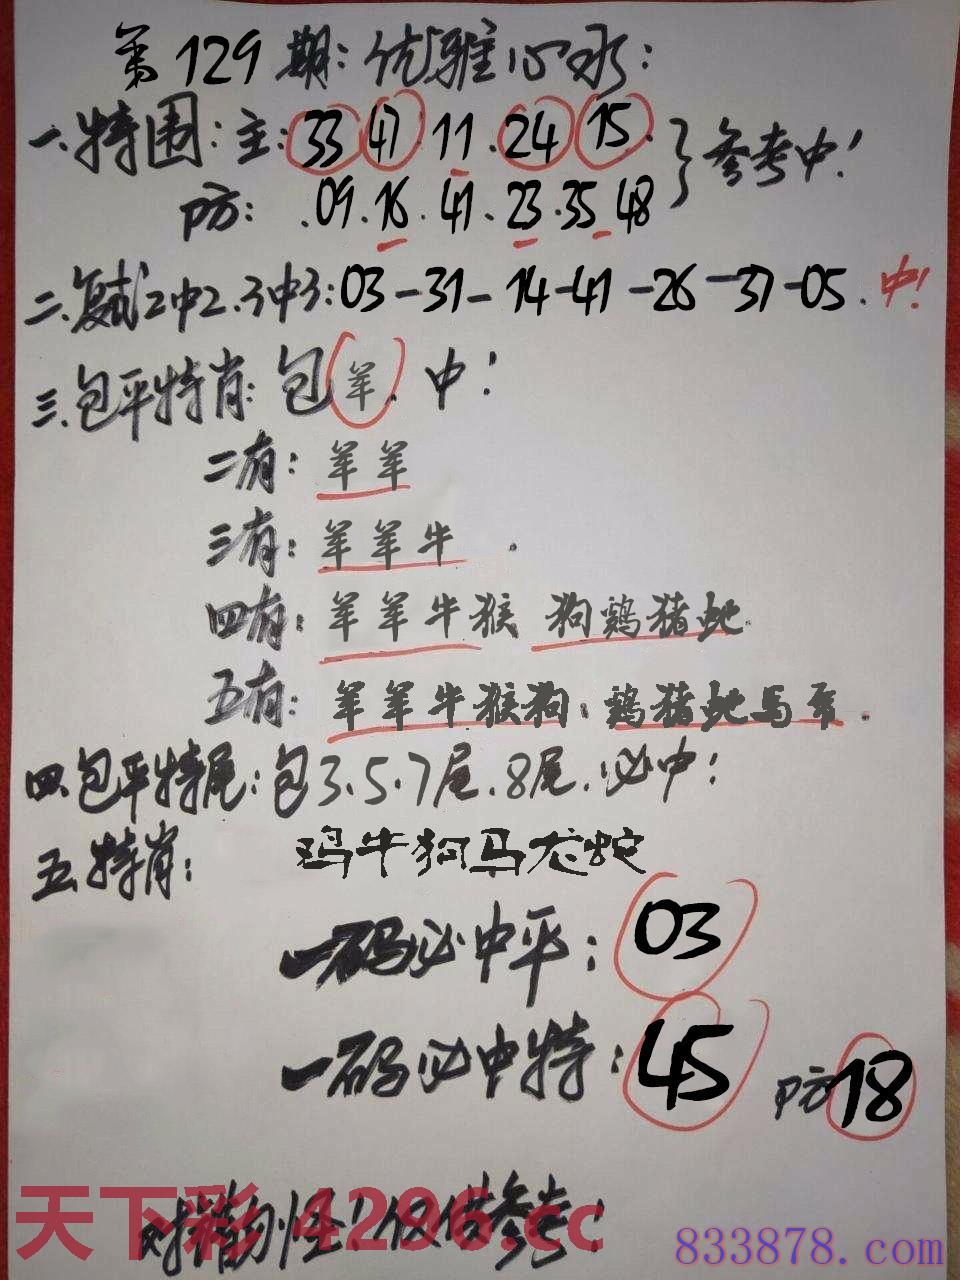 第129期：优雅心水：
一.特围：主：33 47 11. 24 15. 参考中！
防：.09.16.41.23.35 48
二.复式2中2.3中3：03-31-14-41-26-37-05. 中！
三.包平特肖：包羊. 中！
二有：羊羊
三有：羊羊牛.
四有：羊羊牛猴 狗鸡猪蛇.
五有：羊羊牛猴狗.鸡猪蛇马.
四.包平特尾：包3.5.7尾.8尾.必中！
五.特肖：鸡牛狗马龙蛇
一码必中平：03
一码必中特：45 防18
天下彩 4296.cc
仅供参考！
833878.com